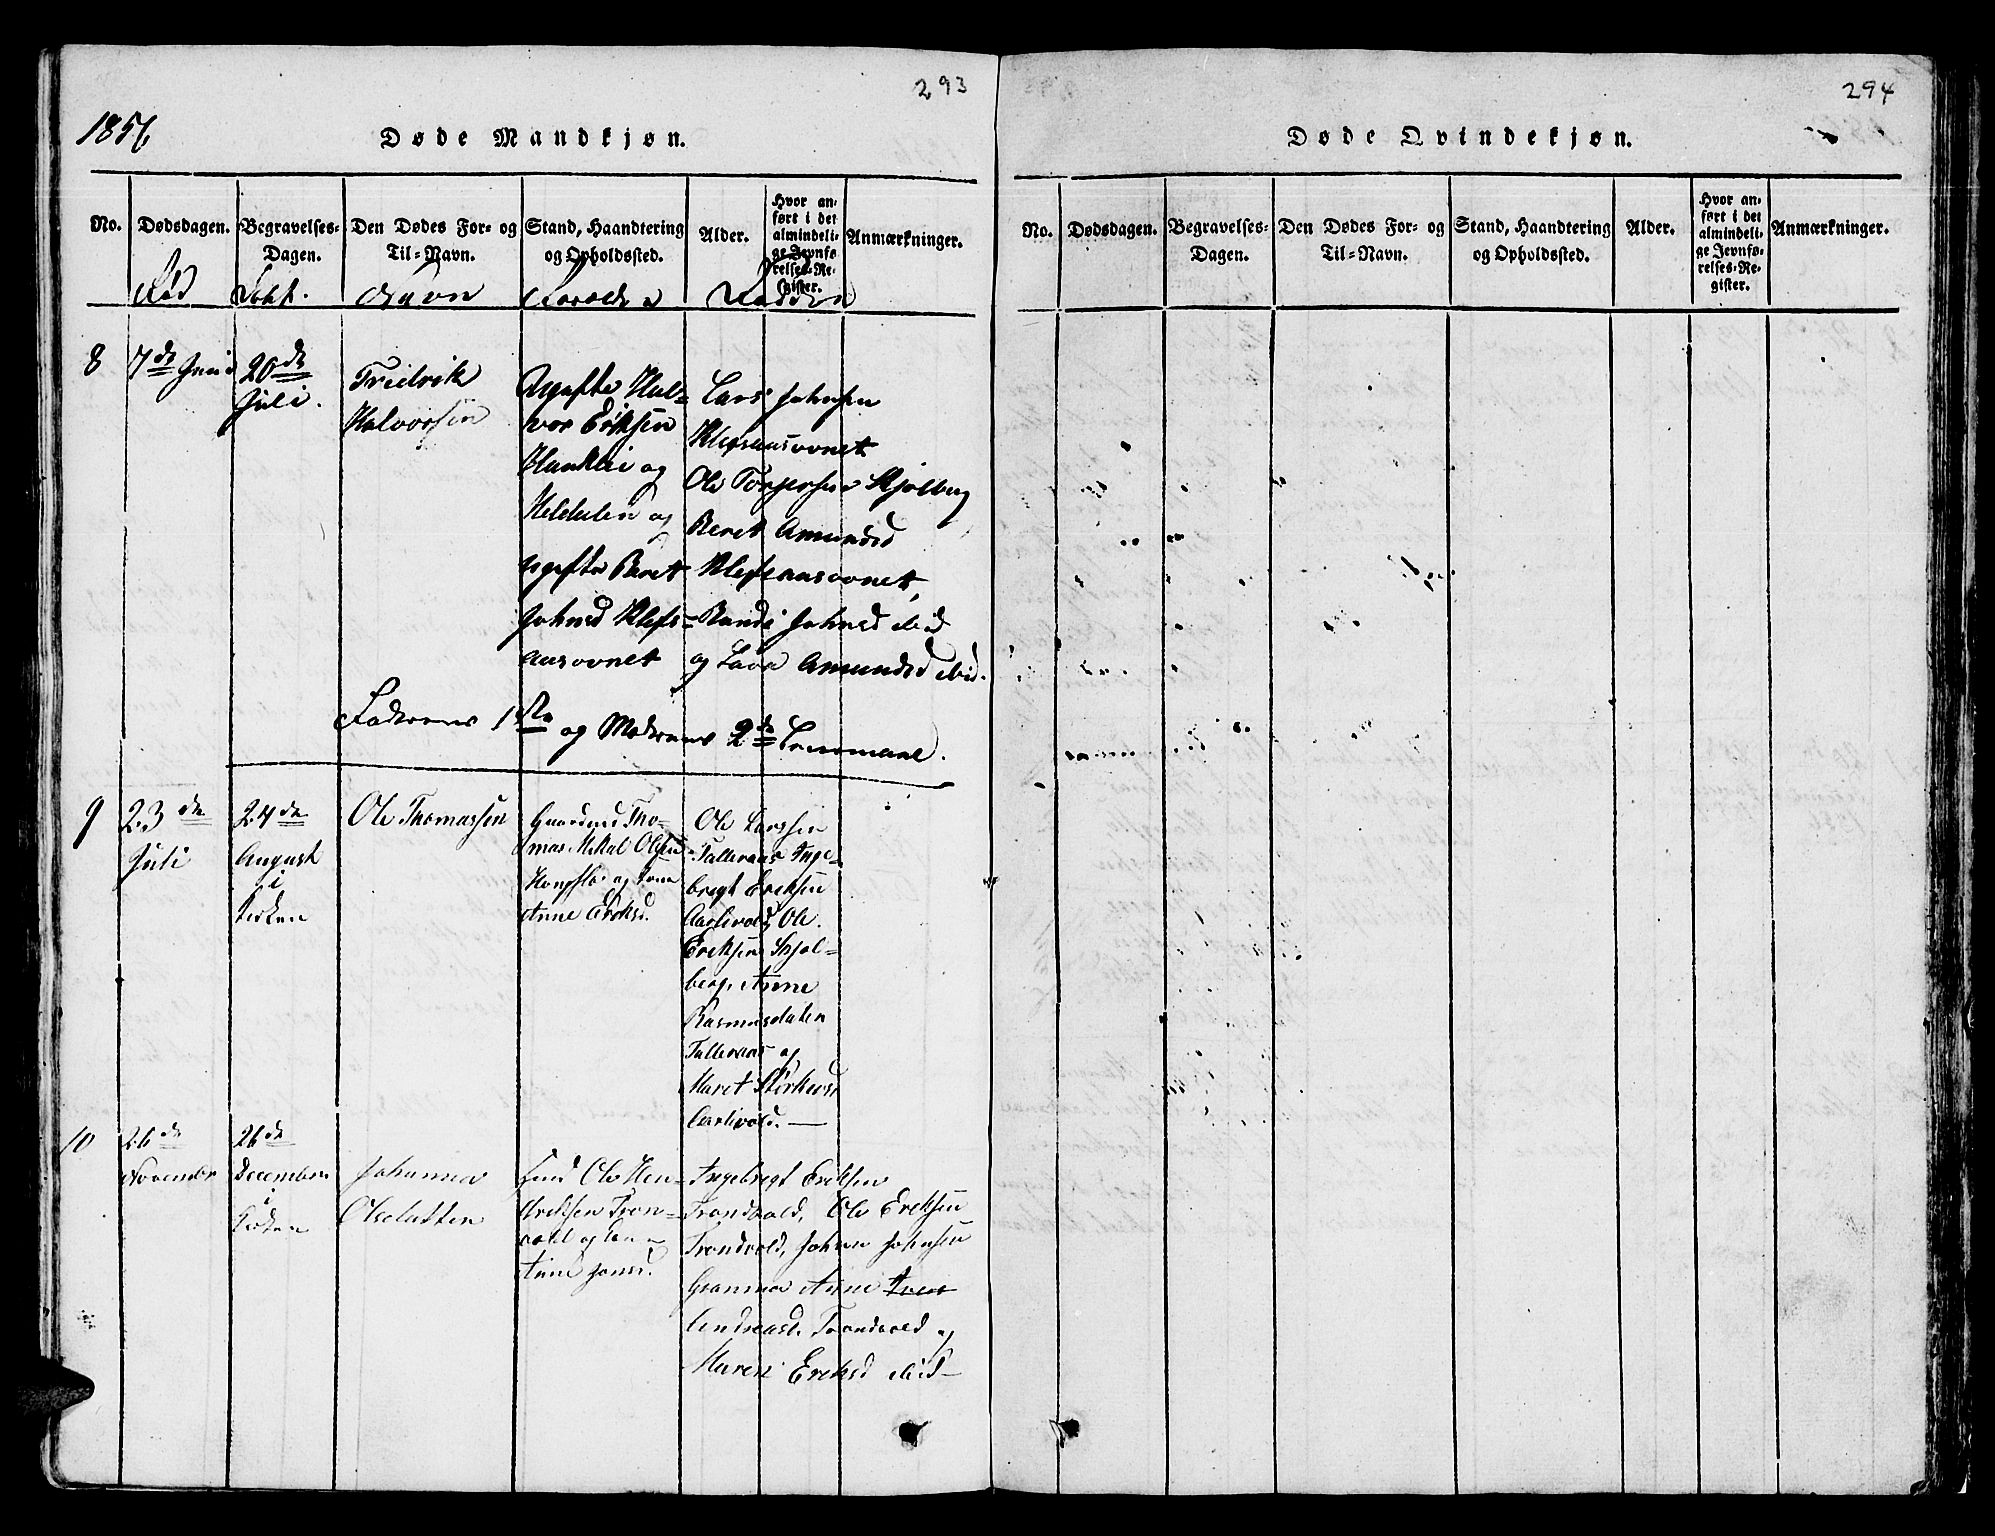 293
1856
Døde Mandkjøn.
No.
Dødsdagen.
Begravelses-
Dagen.
Den Dødes For- og
Til-Navn.
Stand, Haandtering
og Opholdssted.
Alder.
Hvor an-
ført i det
almindeli-
ge Jevnfø-
relses-Re-
gister.
Anmærkninger.
Fød
Døbt.
Navn
Forældre
Faddere
8
7de Juni
20de
Juli.
Fredrik
Halvorsen
Ugifte Hal-
vor Eriksen
og
og
ugifte Beret
Johnsd Klefs-
aasovnet
Lars Johnsen
Klefsaasovnet
Ole Torgersen Skjølberg
Beret Amundsd
Klefsaasovnet,
Randi Johnsd ibid
og Amundsd ibid.
Faderens 1ste og Moderens 2de Leiermaal.
9
23de
Juli
24de
August
i
Kirken
Ole Thomassen
Gaardmd Tho-
mas Mikal Olsen
og Kone
Anne Eriksd.
Ole Larssen
Talleraas Inge-
brigt Eriksen
Aarlivold, Ole
Eriksen Skjøl-
berg, Anne
Rasmusdatter
Talleraas og
Maret
Aarlivold.
10
26de
November
26de
December
i
Kirken
Johanna
Olsdatter
Ole Hen-
driksen Tron-
vold og Kone
Anne Jonsd.
Ingebrigt Eriksen
Trondvold, Ole Eriksen
Trondvold, Johan Johnsen
Granmo Anne
Andreasd. Trondvold og
Maren Eriksd ibid
294
Døde Qvindekjøn.
No.
Dødsdagen.
Begravelses-
Dagen.
Den Dødes For- og
Til-Navn.
Stand, Haandtering
og Opholdssted.
Alder.
Hvor an-
ført i det
almindeli-
ge Jevnfø-
relses-Re-
gister.
Anmærkninger.